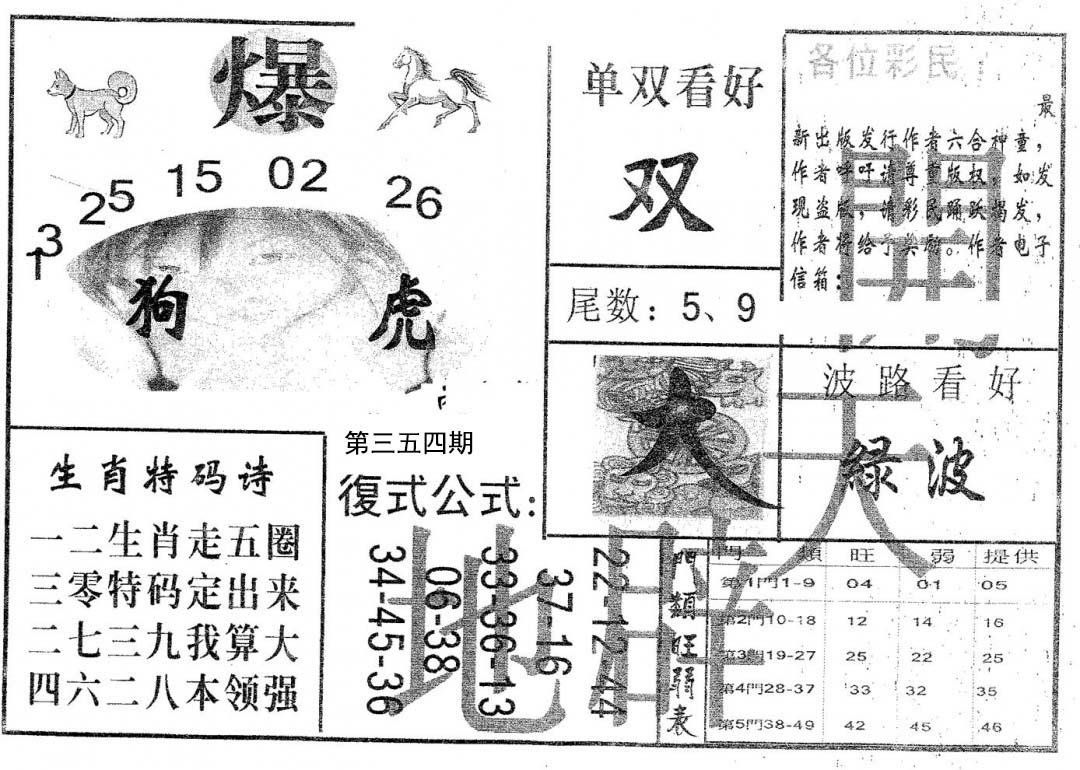 爆
25 15 02 26
13
狗 虎
单双看好
双
尾数：5、9
大
各位彩民：
最
新出版发行作者六合神童，
作者呼吁请尊重版权，如发
现盗版，请彩民踊跃揭发，
作者将给予奖励。作者电子
信箱：
波路看好
綠波
生肖特码诗
一二生肖走五圈
三零特码定出来
二七三九我算大
四六二八本领强
第三五四期
復式公式：
34-45-36
06-38
33-36-13
37-16
22-12-44
門類旺弱表
門 類 旺 弱 提供
第1門1-9 04 01 05
第2門10-18 12 14 16
第3門19-27 25 22 25
第4門28-37 33 32 35
第5門38-49 42 45 46
天
地